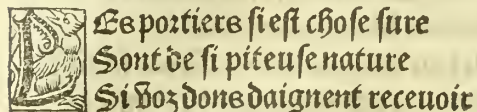 Les portiers si est chose sure
Sont de si piteuse nature
Si voz dons daignent recevoir